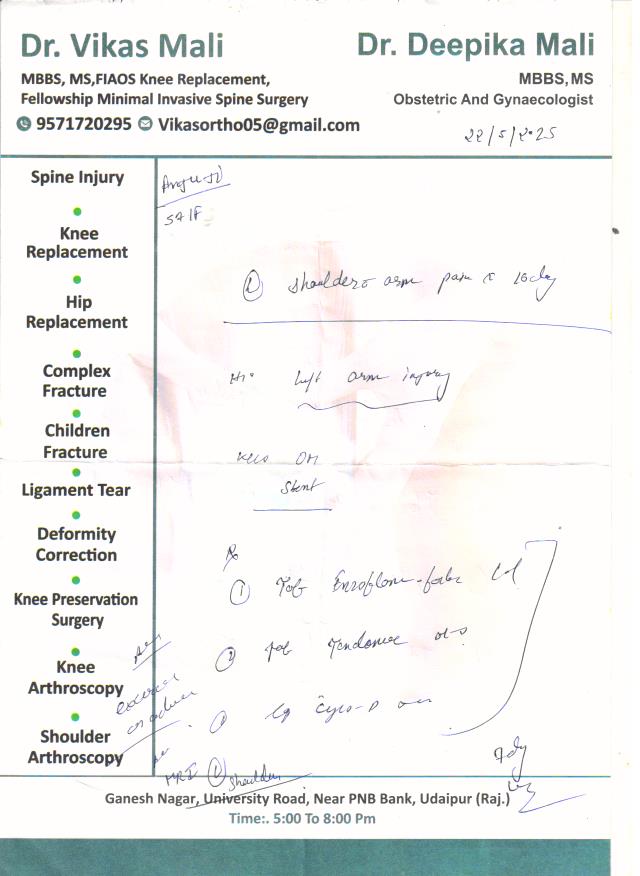 Dr. Vikas Mali
MBBS, MS,FIAOS Knee Replacement,
Fellowship Minimal Invasive Spine Surgery
9571720295 Vikasortho05@gmail.com
Dr. Deepika Mali
MBBS, MS
Obstetric And Gynaecologist
22/5/2025
Spine Injury
Knee
Replacement
Hip
Replacement
Complex
Fracture
Children
Fracture
Ligament Tear
Deformity
Correction
Knee Preservation
Surgery
Knee
Arthroscopy
Shoulder
Arthroscopy
(L) shoulder arm pain 10day
left arm injury
DM
Stent
Rx
1 Tab
2 Tab
MRI (L) Shoulder
7 day
Ganesh Nagar, University Road, Near PNB Bank, Udaipur (Raj.)
Time:. 5:00 To 8:00 Pm